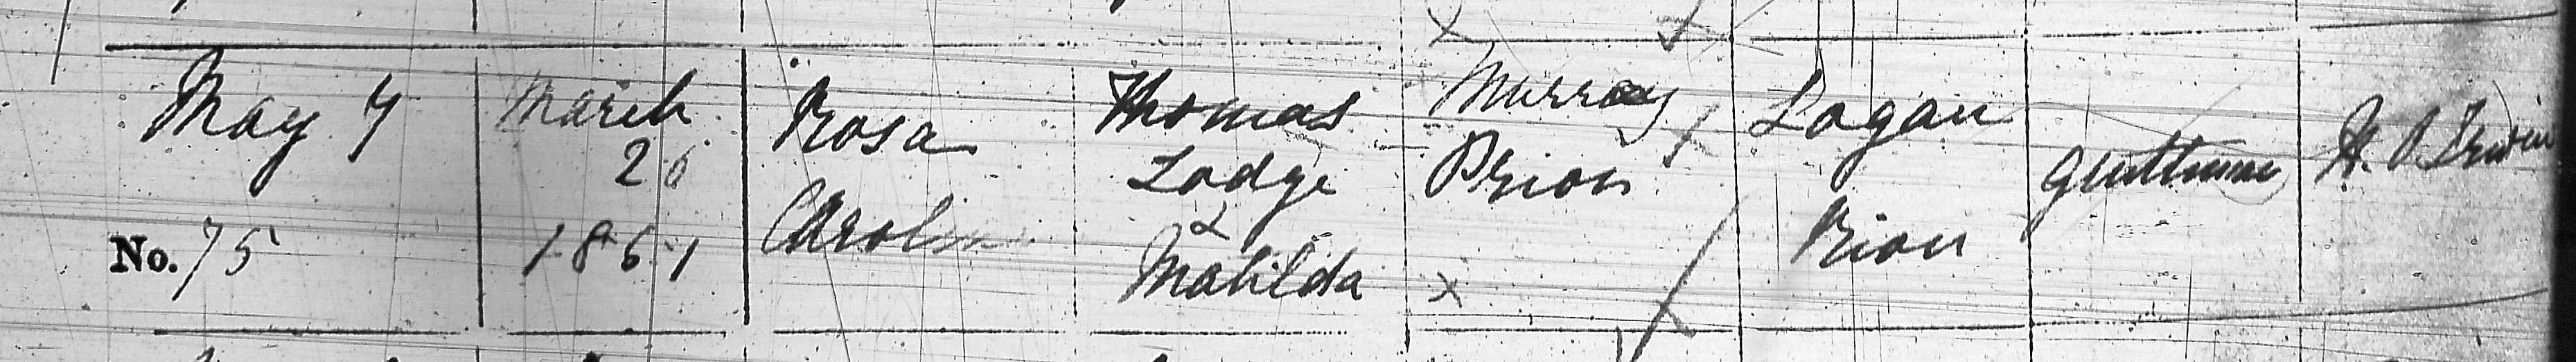 May 7
No. 75
March
26
1861
Rosa
Caroline
Thomas
Lodge
&
Matilda
Murray
Prior
Logan
Prior
Gentleman
H. O Irwin